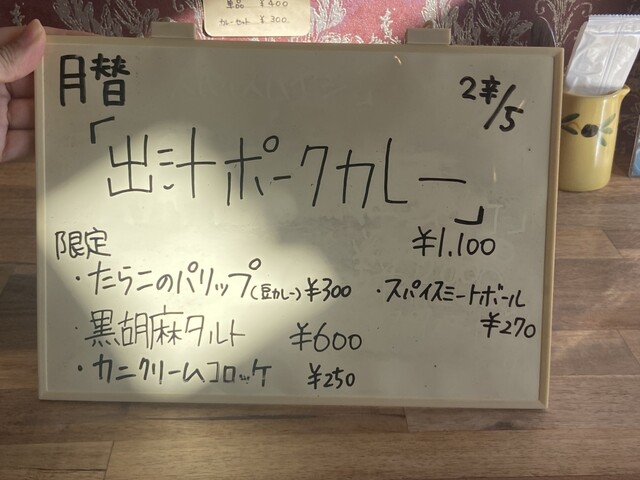 単品 ¥400
カレーセット ¥300
月替
2辛/5
「出汁ポークカレー」
¥1,100
限定
・たらこのパリップ(豆カレー)¥300
・スパイスミートボール
¥270
・黒胡麻タルト ¥600
・カニクリームコロッケ ¥250